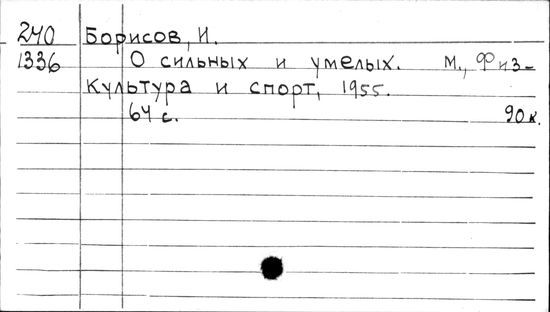 240 Борисов, И.
1336 О сильных и умелых. М., Физ-
культура и спорт, 1955.
64 с. 90 к.